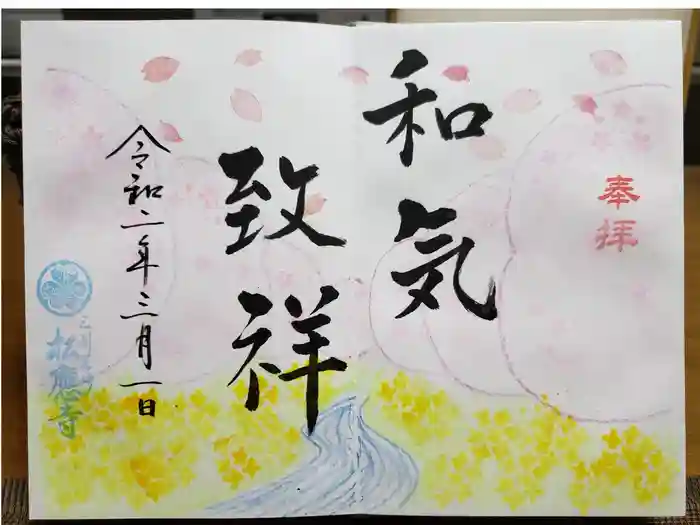 奉拝
和気
致祥
令和二年三月一日
松應寺